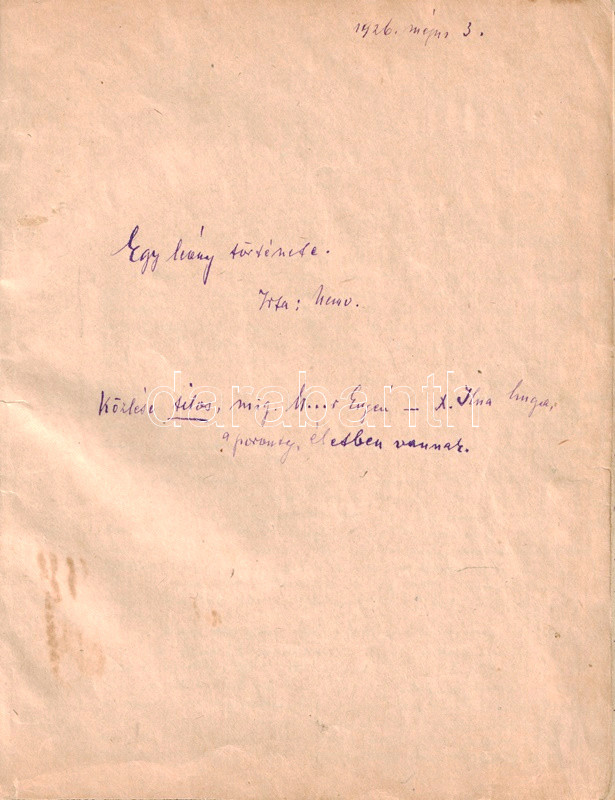 1926. május 3.
Egy leány története.
Irta: Nemo.
Közlése tilos, mig M...r Jenő — X. Ilna huga,
életben vannak.
darabanth